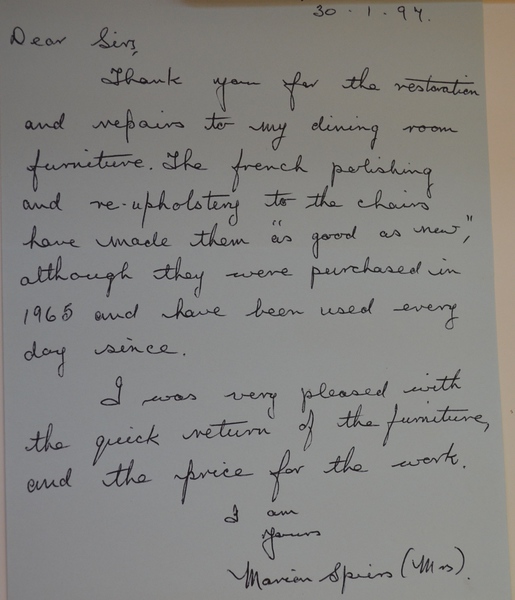 30 . 1 . 97.
Dear Sirs,
Thank you for the restoration
and repairs to my dining room
furniture. The french polishing
and re-upholstery to the chairs
have made them "as good as new",
although they were purchased in
1965 and have been used every
day since.
I was very pleased with
the quick return of the furniture,
and the price for the work.
I am
yours
Marion Spiers (Mrs).